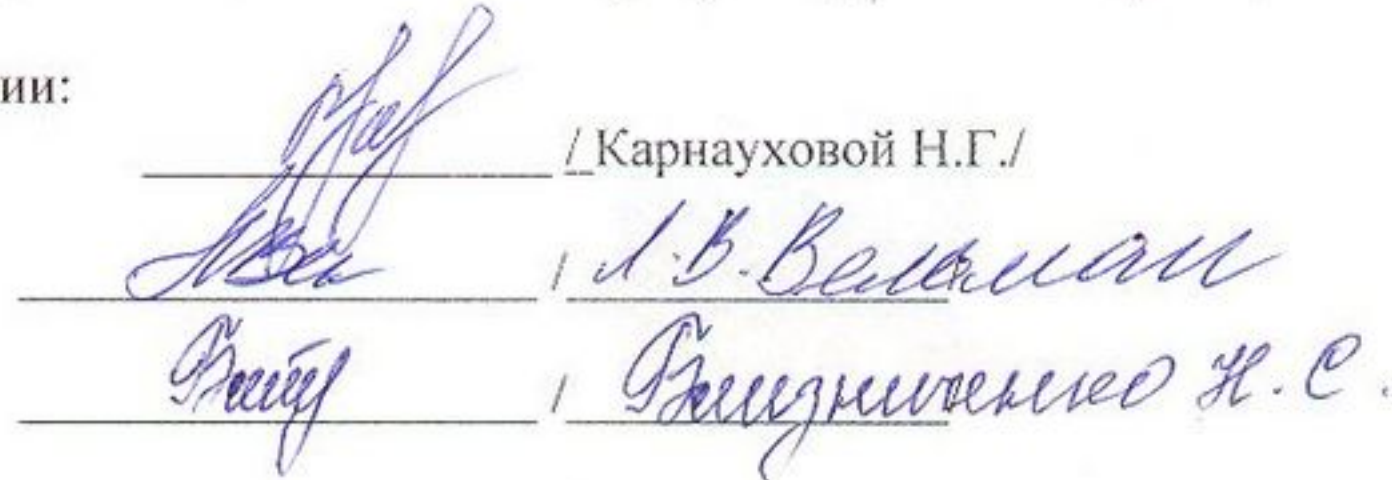 ии:
/ Карнауховой Н.Г./
/ Л.В. Вельман
/ Близниченко Н.С.